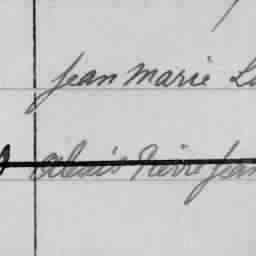 Jean Marie
Alexis Pierre Jean